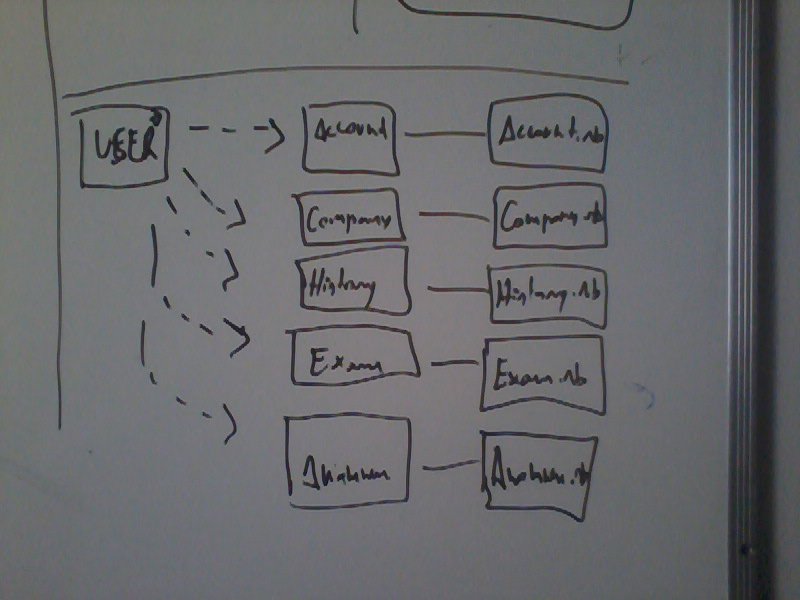 USER
Account
Account.rb
Company
Company.rb
History
History.rb
Exams
Exam.rb